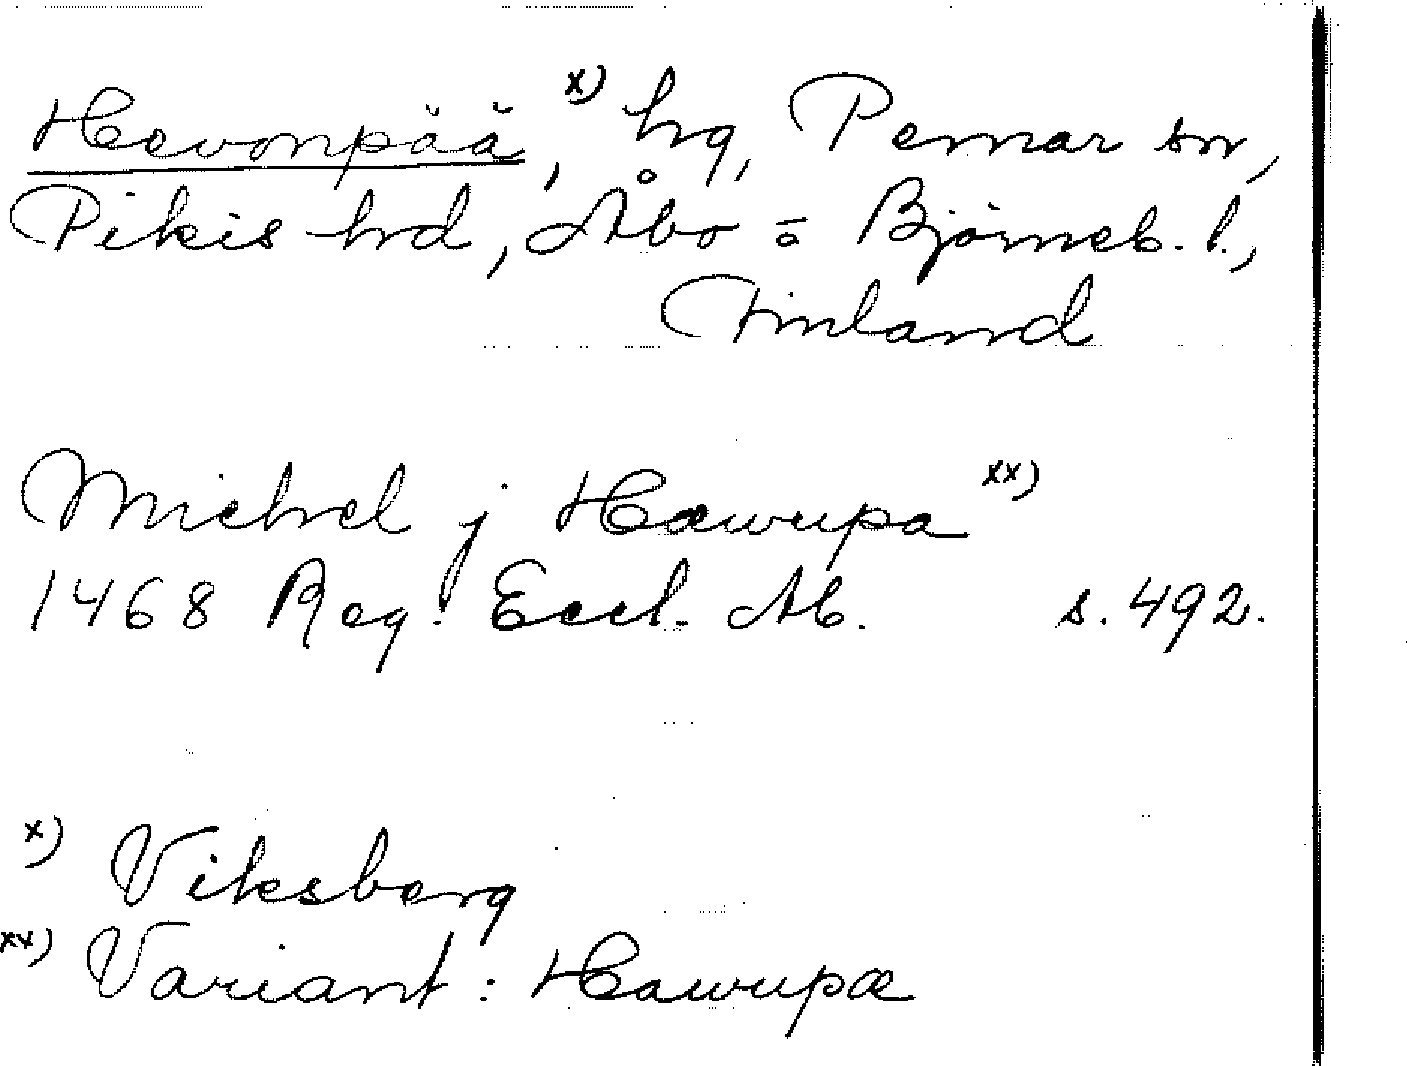 Hevonpää, x) hg, Pemar sn,
Pikis hrd, Åbo o Björneb. l.,
Finland
Michel j Hæwupa xx)
1468 Reg. Eccl. Ab. s. 492.
x) Viksberg
xx) Variant: Hawupæ